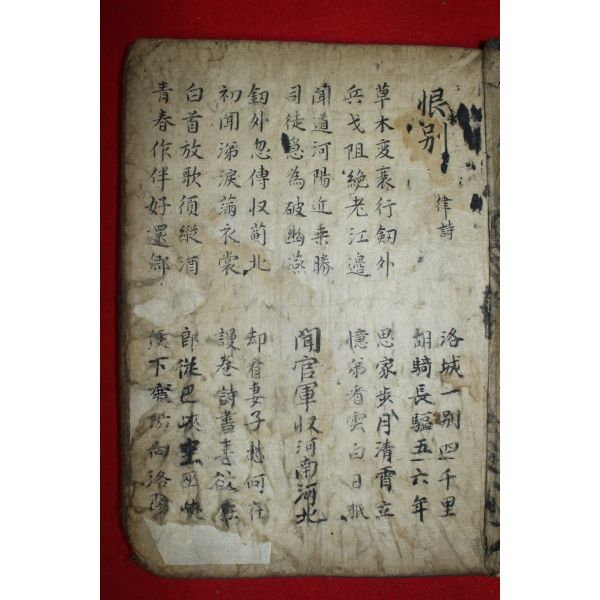 恨別
律詩
洛城一別四千里
胡騎長驅五六年
草木変衰行釰外
兵戈阻絶老江邊
思家步月清宵立
憶弟看雲白日眠
聞道河陽近乗勝
司徒急為破幽燕
聞官軍收河南河北
釰外忽傳収薊北
初聞涕淚滿衣裳
却看妻子愁何在
謾卷詩書喜欲
白首放歌須縱酒
青春作伴好還鄉
郎從巴峽巫峽
下襄陽向洛